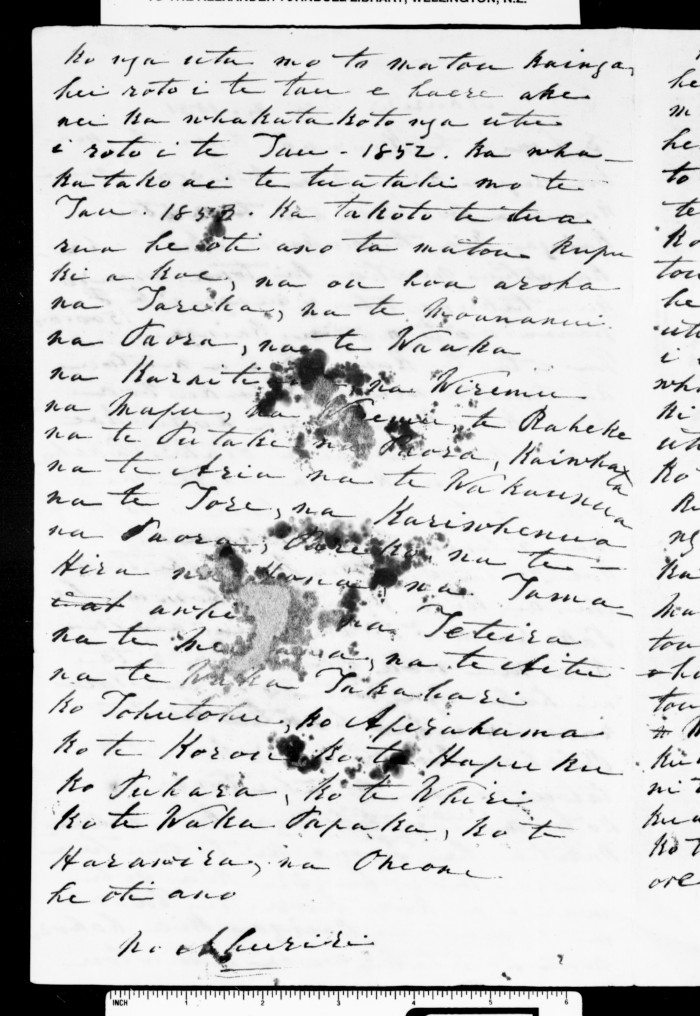 TO THE ALEXANDER TURNBULL LIBRARY, WELLINGTON, N.Z.
ko nga utu mo to matou kainga,
hei roto i te tau e haere ake
nei ka whakatakoto nga utu
i roto i te Tau - 1852. ka wha-
katakoto ai te tuatahi mo te
Tau - 1853. Ka takoto te tua
rua he oti ano ta matou kupu
ki a koe, na ou hoa aroha
na Tareha, na te Moananui
na Paora, na te Waaka
na Karaiti na Wiremu
na Mapu, na te Raheke
na te Putake na Paora, Kaiwha
ta
na te Aria na te Wakaunua
na te Tore, na Karisohenua
na Paora, na te -
Hira na Hona na Tama-
awhi na Teteira
na te na te Aitu
na te Waka Takahari
ko Tohutohu, ko Aperahama
ko te Korou ko te Hapuku
ko Puhara, ko te Whiri
ko te Waka Papaka, ko te
Harawira, na Oneone
he oti ano
No Ahuriri
INCH 1 2 3 4 5 6
he
m
he
to
te
ko
tou
he
utu
i
wh
ki
uh
ko
ng
ka
ma
tou
tou
ko t
ore